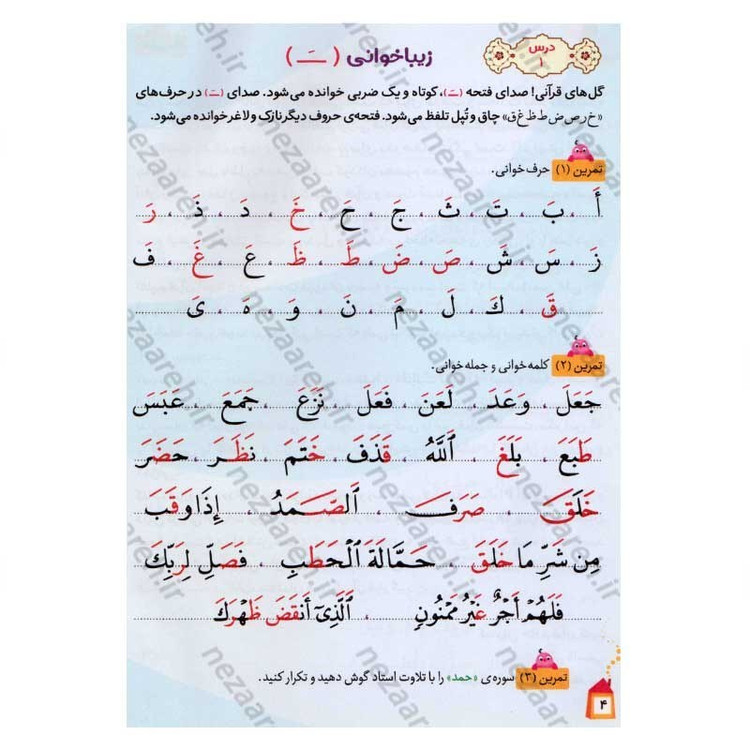 درس ۱
زیباخوانی ( ـَـ )
گل‌های قرآنی! صدای فتحه (ـَـ)، کوتاه و یک ضربی خوانده می‌شود. صدای (ـَـ) در حرف‌های
«خ ر ص ض ط ظ غ ق» چاق و تُپل تلفظ می‌شود. فتحه‌ی حروف دیگر نازک و لاغر خوانده می‌شود.
تمرین (۱) حرف‌خوانی.
أَ ، بَ ، تَ ، ثَ ، جَ ، حَ ، خَ ، دَ ، ذَ ، رَ
زَ ، سَ ، شَ ، صَ ، ضَ ، طَ ، ظَ ، عَ ، غَ ، فَ
قَ ، كَ ، لَ ، مَ ، نَ ، وَ ، هَ ، یَ
تمرین (۲) کلمه‌خوانی و جمله‌خوانی.
جَعَلَ ، وَعَدَ ، لَعَنَ ، فَعَلَ ، نَزَعَ ، جَمَعَ ، عَبَسَ
طَبَعَ ، بَلَغَ ، اَللّٰهُ ، قَذَفَ ، خَتَمَ ، نَظَرَ ، حَضَرَ
خَلَقَ ، صَرَفَ ، اَلصَّمَدُ ، إِذَا وَقَبَ
مِن شَرِّ مَا خَلَقَ ، حَمَّالَةَ الْحَطَبِ ، فَصَلِّ لِرَبِّكَ
فَلَهُمْ أَجْرٌ غَيْرُ مَمْنُونٍ ، اَلَّذِیٓ أَنقَضَ ظَهْرَكَ
تمرین (۳) سوره‌ی «حمد» را با تلاوت استاد گوش دهید و تکرار کنید.
۴
nezaareh.ir